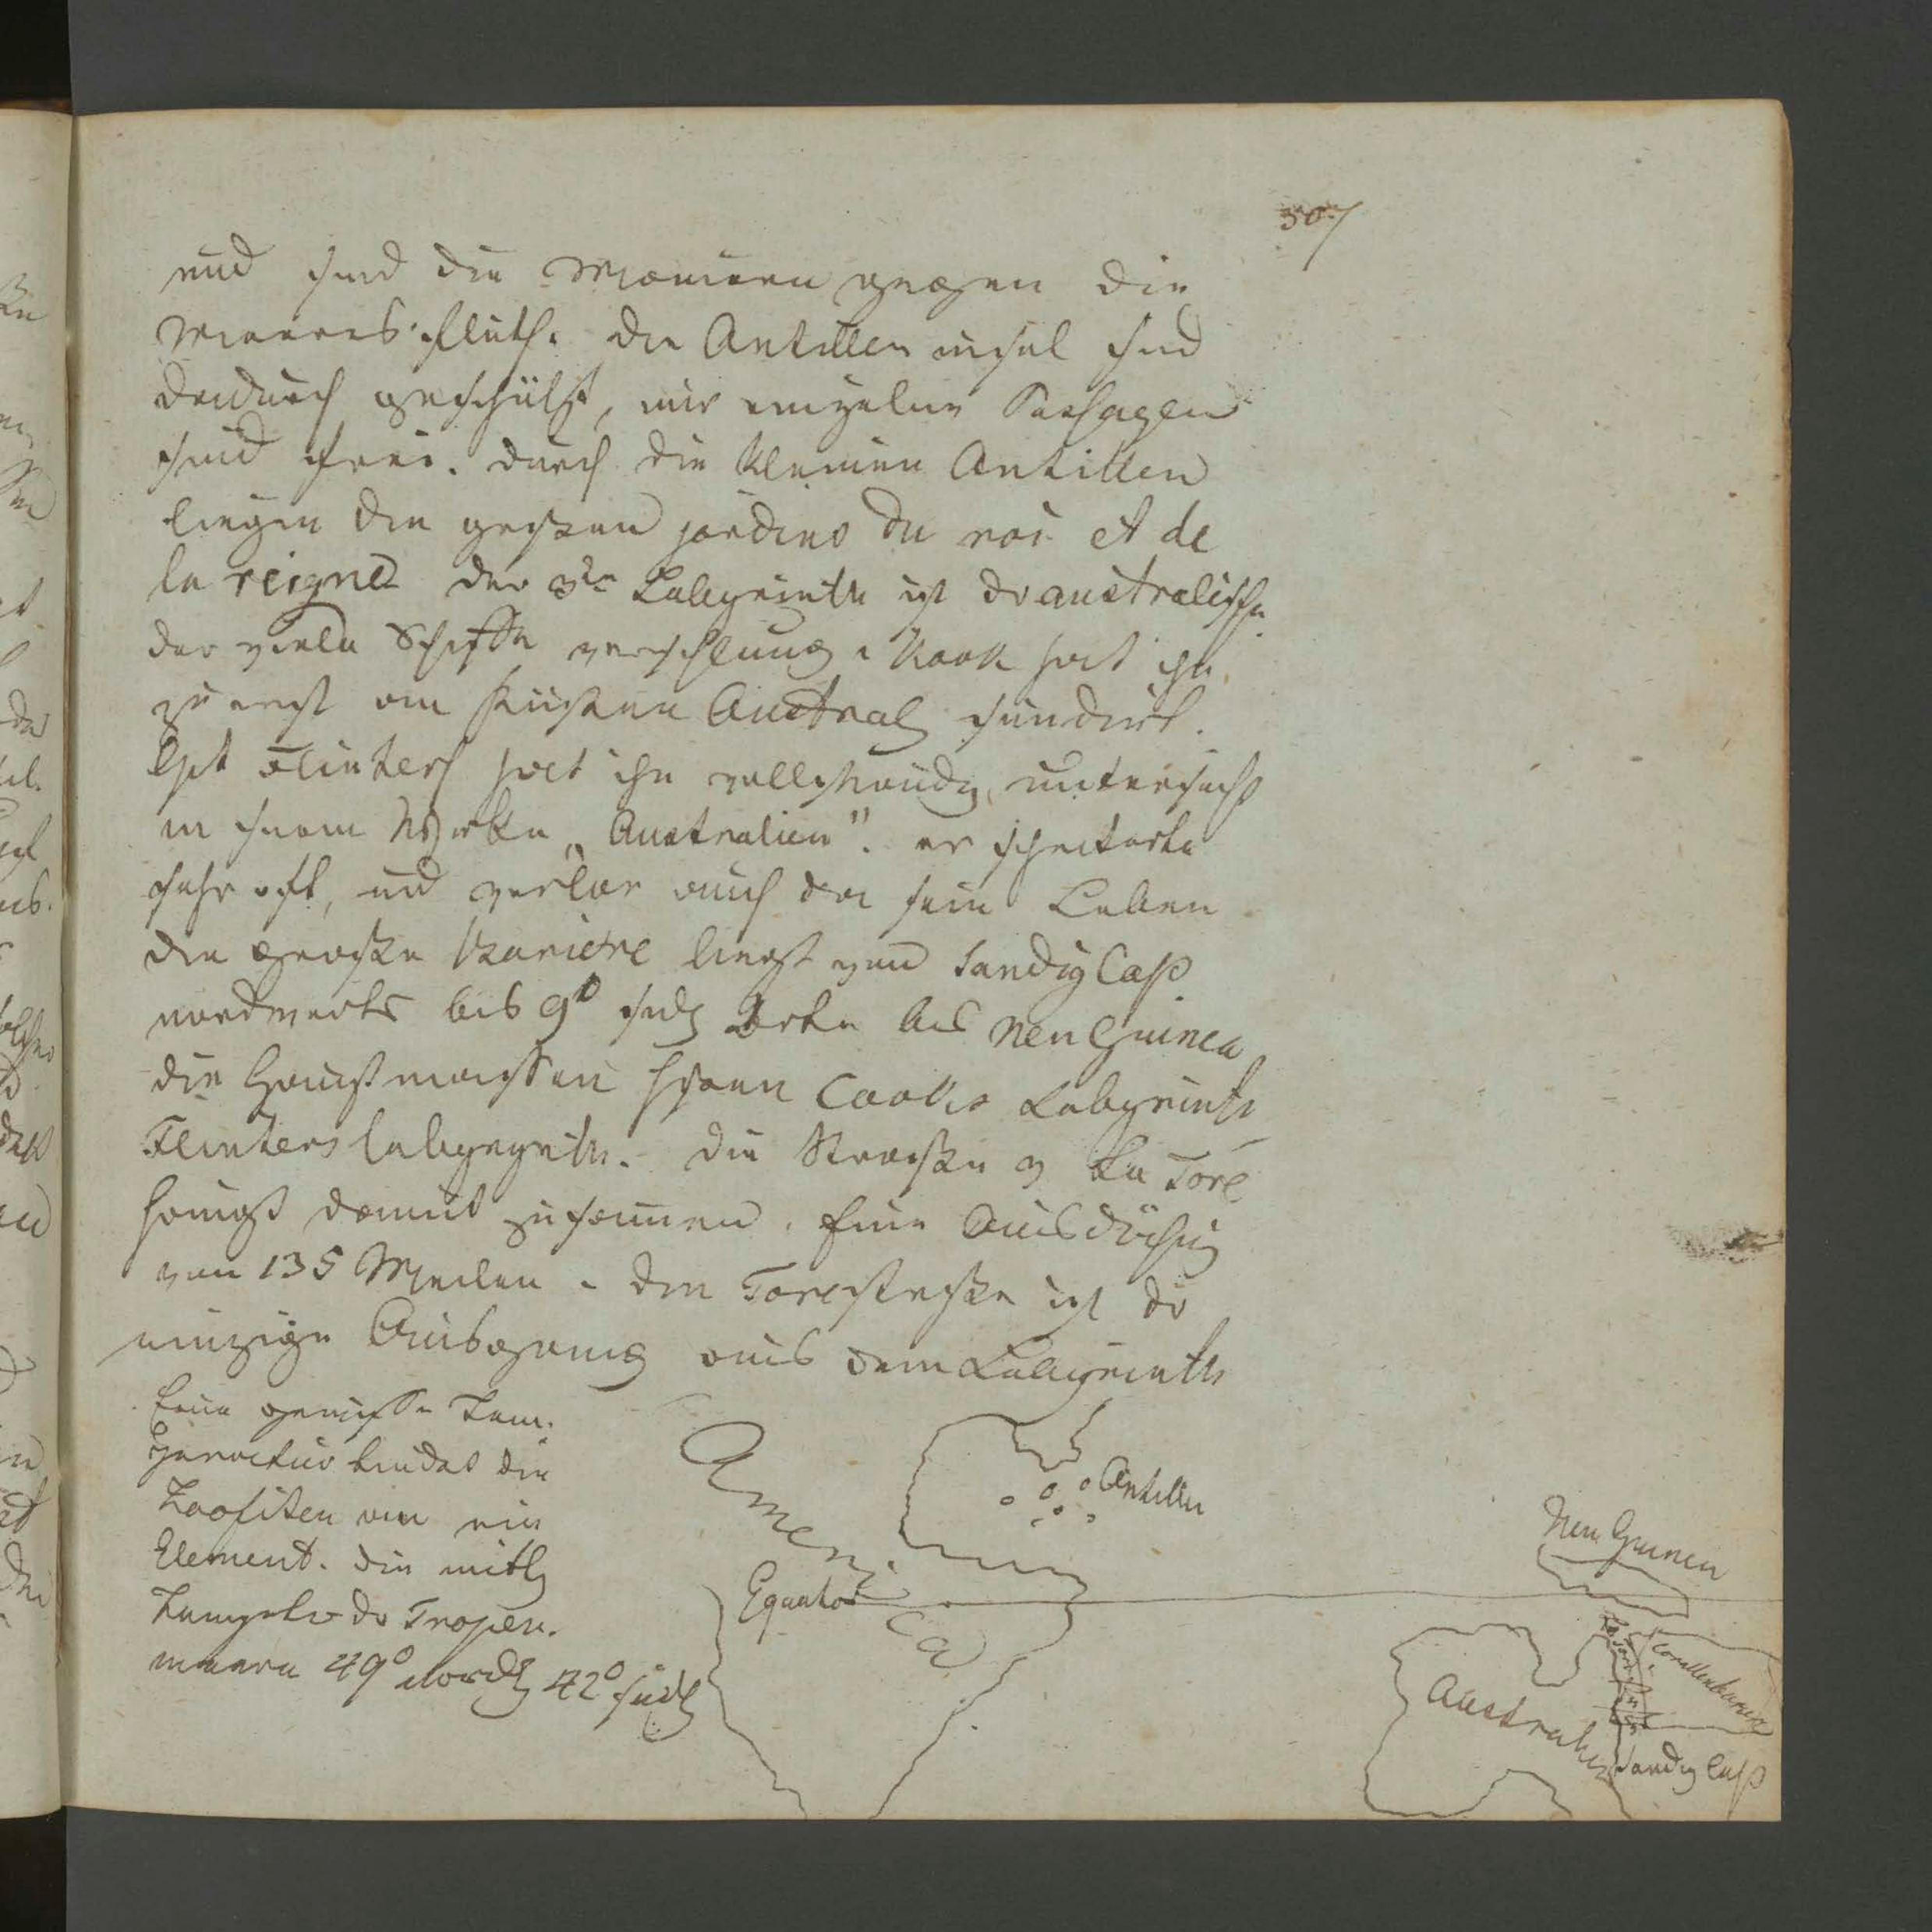 307
und sind die Mauern gegen die
Meeres fluth. die Antillen insel sind
dadurch geschützt, nur einzelne Passagen
sind frei. durch die kleinen Antillen
liegen die grossen jardins du roi et de
la reigne der 3te Labyrinth ist dr australische
der viele Schiffe verschlang. Kook hat ihn
zu erst an Küsten Austral
Cpt Flinters hat ihn vollständig untersucht
in seinem Werke „Australien". er scheiterte
sehr oft, und verlor auch da sein Leben
die grosse Bariere liegt von Sandig Cap
nordwerts bis 9° südl Breite bis Neu Guinea
die Hauptmassen Cooks Labyrinth
Flinters labyrynth. die Strasse v La Tore
hängt damit zusammen. Eine Ausdöhnung
von 135 Meilen. die Torestrasse ist dr
einzige Ausgang aus dem Labyrinth
Eine gewisse Tem-
peratur bindet die
Zoofiten an ein
Element. die mittl
Temptr dr Tropen-
meere 49° nördl 42° südl
America
Antillen
Equator
Neu Guinea
Corallenbariere
Australien
Sandig Cap